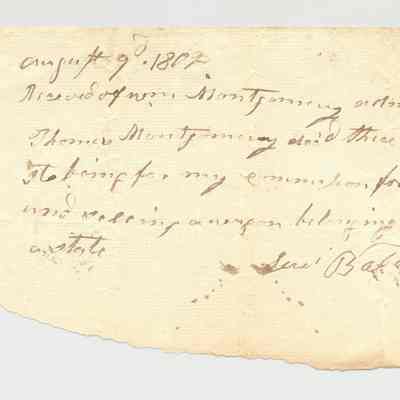 august 9d 1802
Receivd of wm Montgomery adm
Thomas Montgomery decd three
it being for my commion for
and selling a wagon belonging
astate
Bak